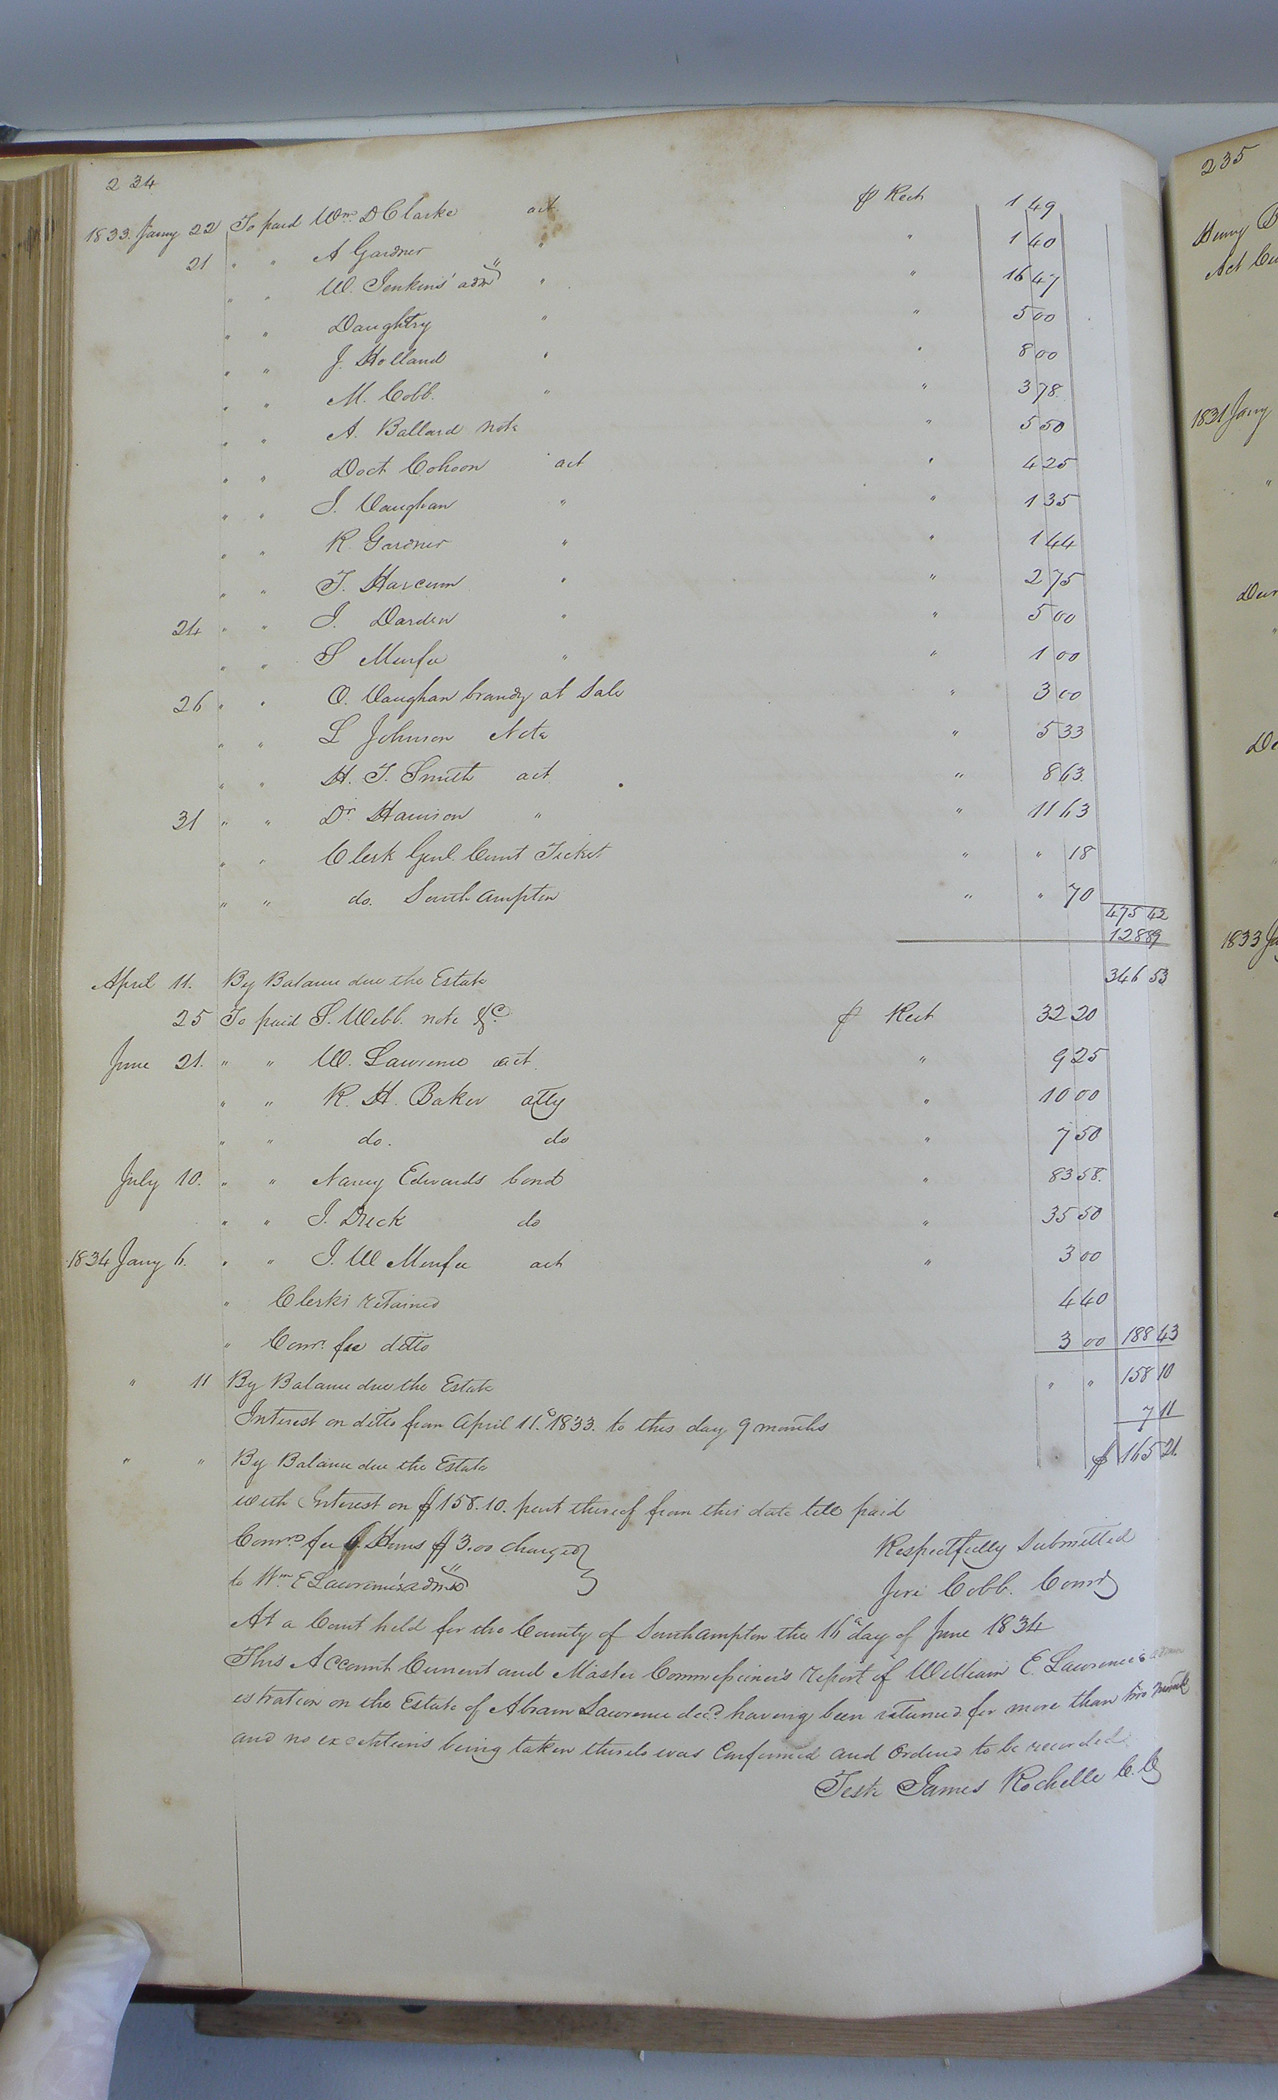 234
1833. Jany 22 To paid Wm D Clarke act ⅌ Rect 1 49
21 " " A Gardner " " 1 40
" " W. Jenkins' admr " " 16 47
" " Daughtry " " 5 00
" " J. Holland " " 8 00
" " M. Cobb. " " 3 78
" " A. Ballard note " 5 50
" " Doct Cohoon act " 4 25
" " J. Vaughan " " 1 35
" " R. Gardner " " 1 44
" " T. Harcum " " 2 75
24 " " J. Darden " " 5 00
" " S Murfee " " 1 00
26 " " O. Vaughan brandy at Sale " 3 00
" " L Johnson Note " 5 33
" " H. T. Smith act " 8 63
31 " " Dr Harrison " " 11 63
" " Clerk Genl. Court Ticket " " 18
" " do. Southampton " " 70
475 42
128 89
April 11. By Balance due the Estate 346 53
25 To paid S. Webb. note &c. ⅌ Rect 32 20
June 21. " " W. Lawrence act. " 9 25
" " R. H. Baker atty " 10 00
" " do. do " 7 50
July 10. " " Nancy Edwards bond " 83 58.
" " J. Beck do " 35 50
1834 Jany 6. " " J. W Murfee act " 3 00
" Clerks retained 4 40
" Comr. fee ditto 3 00 188 43
" 11 By Balance due the Estate " " 158 10
Interest on ditto from April 11. 1833. to this day 9 months 7 11
" " By Balance due the Estate $ 165 21.
with Interest on $158.10. part thereof from this date till paid
Comrs fee 6 Hours $3.00 charged Respectfully Submitted
to Wm E Lawrence's admr Jere Cobb. Comr
At a Court held for the County of Southampton the 16th day of June 1834
This Account Current and Master Commissioner's report of William E. Lawrence's admin
istration on the Estate of Abram Lawrence decd. having been returned for more than two months
and no exceptions being taken thereto was Confirmed and Ordered to be recorded.
Teste James Rochelle C. C
235
Henry
Act Cu
1831 Jany
"
1833 Ja